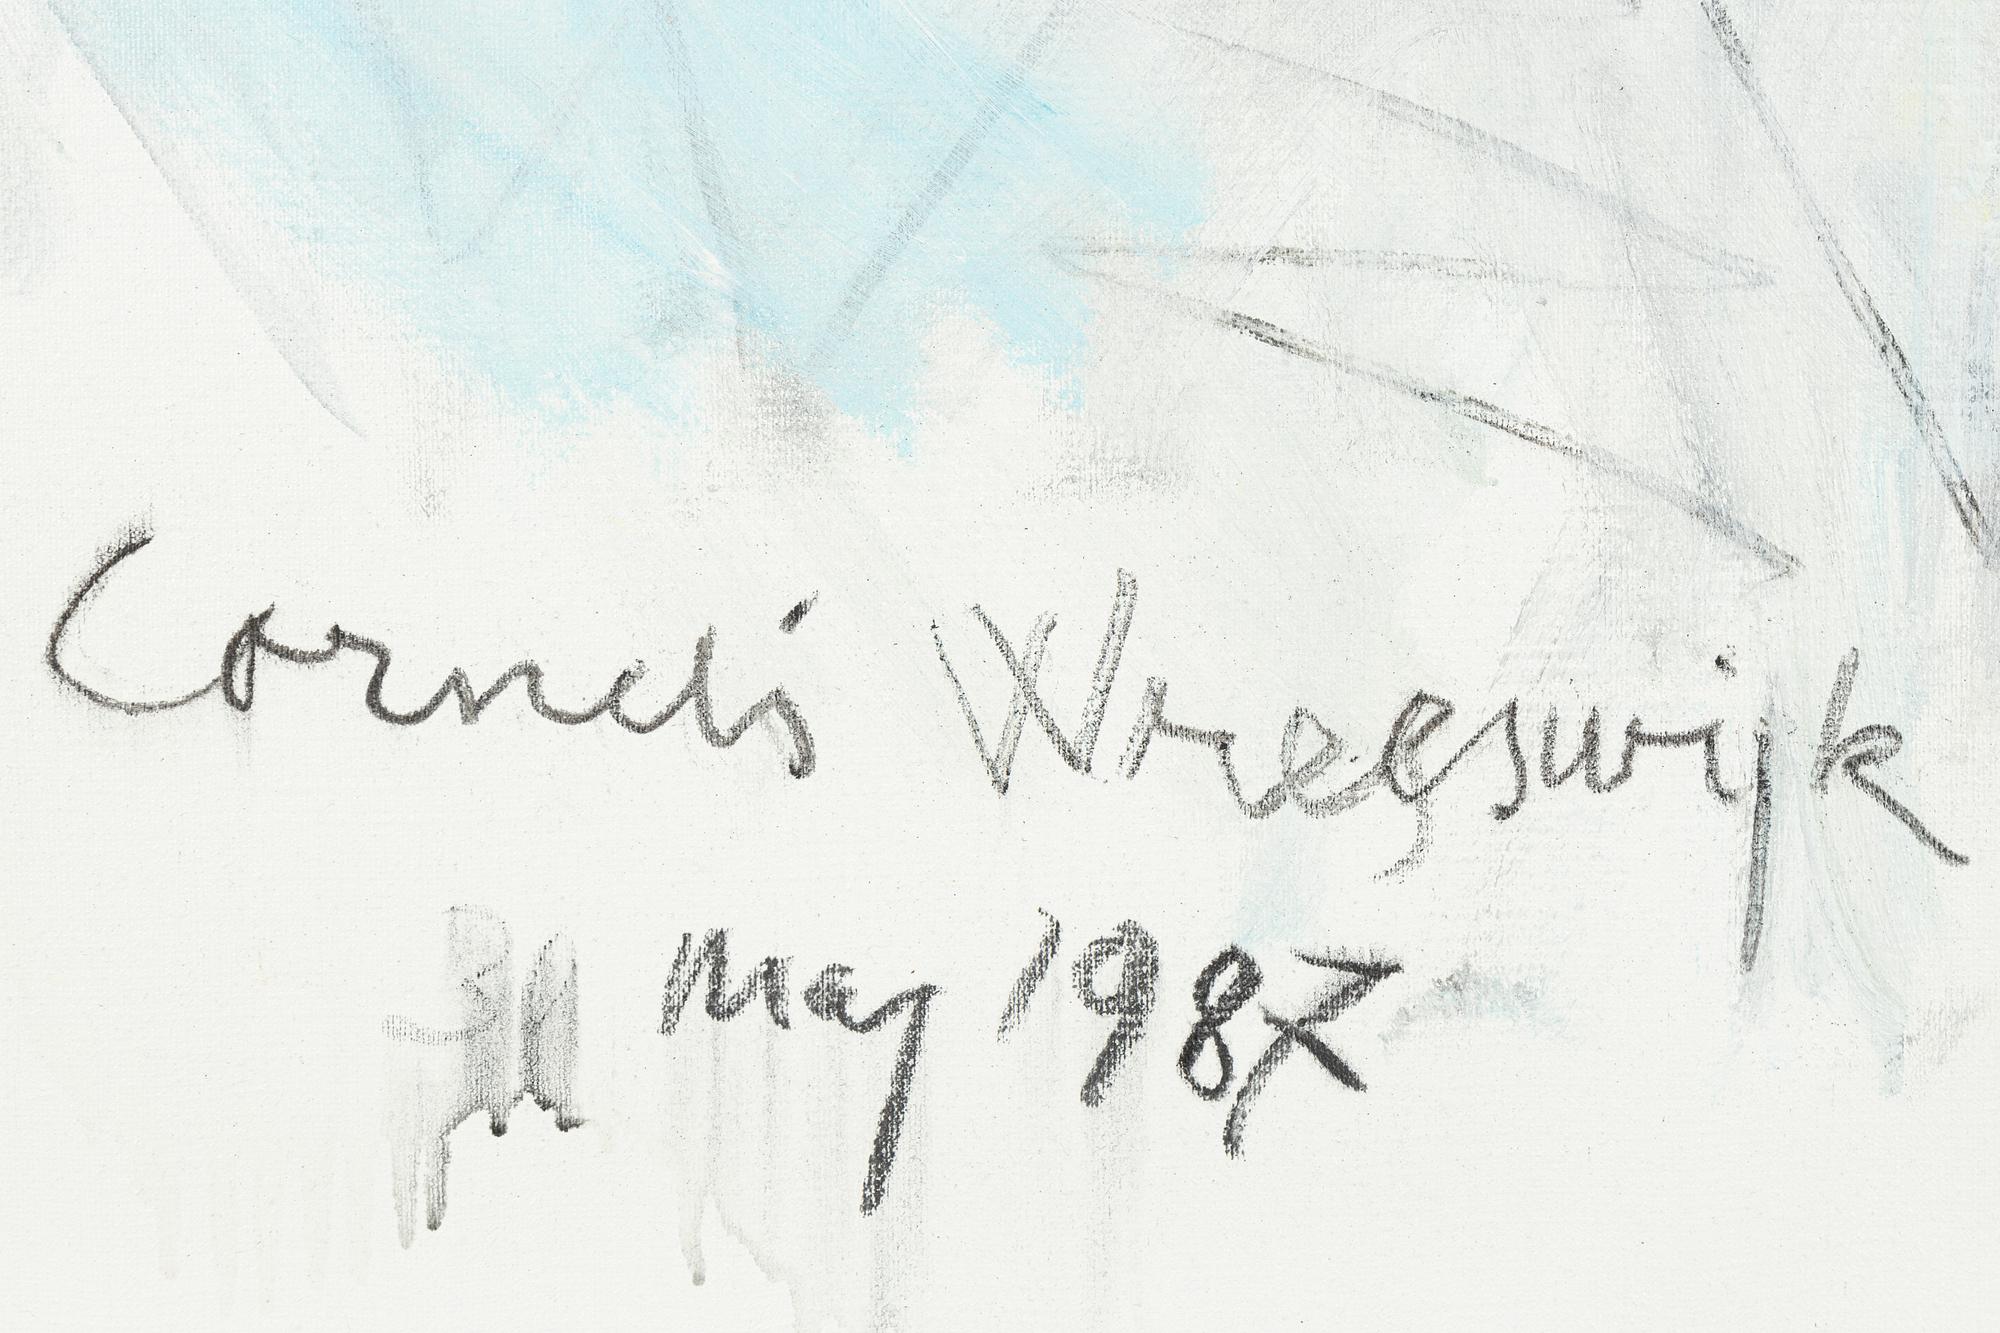 Cornelis Wreeswijk
May 1987